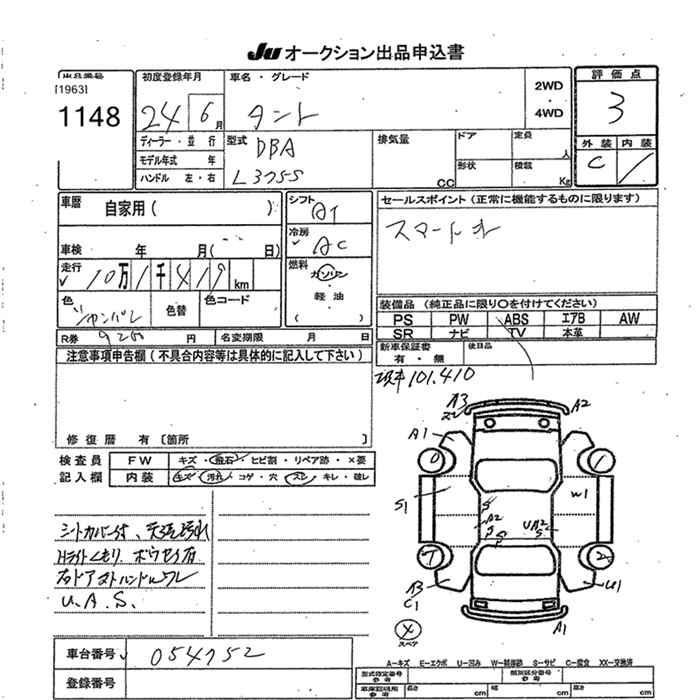 JU オークション出品申込書
出品番号
[1963]
1148
初度登録年月
24 6月
車名・グレード
タント
2WD
・
4WD
評価点
3
外装 内装
C
ディーラー・並行
モデル年式 年
ハンドル 左・右
型式
DBA
L375S
排気量
CC
ドア
定員
人
形状
積載
Kg
車暦
自家用( )
車検 年 月( 日)
走行
10万1千419km
色
色替
色コード
シフト
AT
冷房
AC
燃料
ガソリン
・
軽油
( )
セールスポイント(正常に機能するものに限ります)
装備品(純正品に限り○を付けてください)
PS PW ABS エアB AW
SR ナビ TV 本革
新車保証書
有・無
後日品
R券 円
名変期限 月 日
注意事項申告欄(不具合内容等は具体的に記入して下さい)
修復暦 有〔箇所 〕
101.410
検査員
記入欄
FW キズ・飛石・ヒビ割・リペア跡・×要
内装 キズ・汚れ・コゲ・穴・スレ・キレ・破レ
シートカバー付、天張汚れ
U.A.S.
A3
A2
A1
S1
W1
A2
UA2
S
A3
C1
U1
A1
スペア
車台番号
054752
登録番号
A―キズ E―エクボ U―凹み W―補修跡 S―サビ C―腐食 XX―交換済
型式指定番号
参考
類別区分番号
参考
車庫証明用
参考
長さ cm
幅 cm
高さ cm